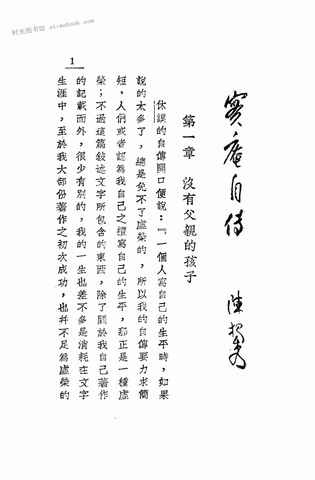 實庵自傳
陳獨秀
第一章 沒有父親的孩子
休謨的自傳開口便說：『一個人寫自己的生平時，如果
說的太多了，總是免不了虛榮的，所以我的自傳要力求簡
短，人們或者認為我自己之擅寫自己的生平，那正是一種虛
榮；不過這篇敘述文字所包含的東西，除了關於我自己著作
的記載而外，很少有別的，我的一生也差不多是消耗在文字
生涯中，至於我大部份著作之初次成功，也并不足為虛榮的
1